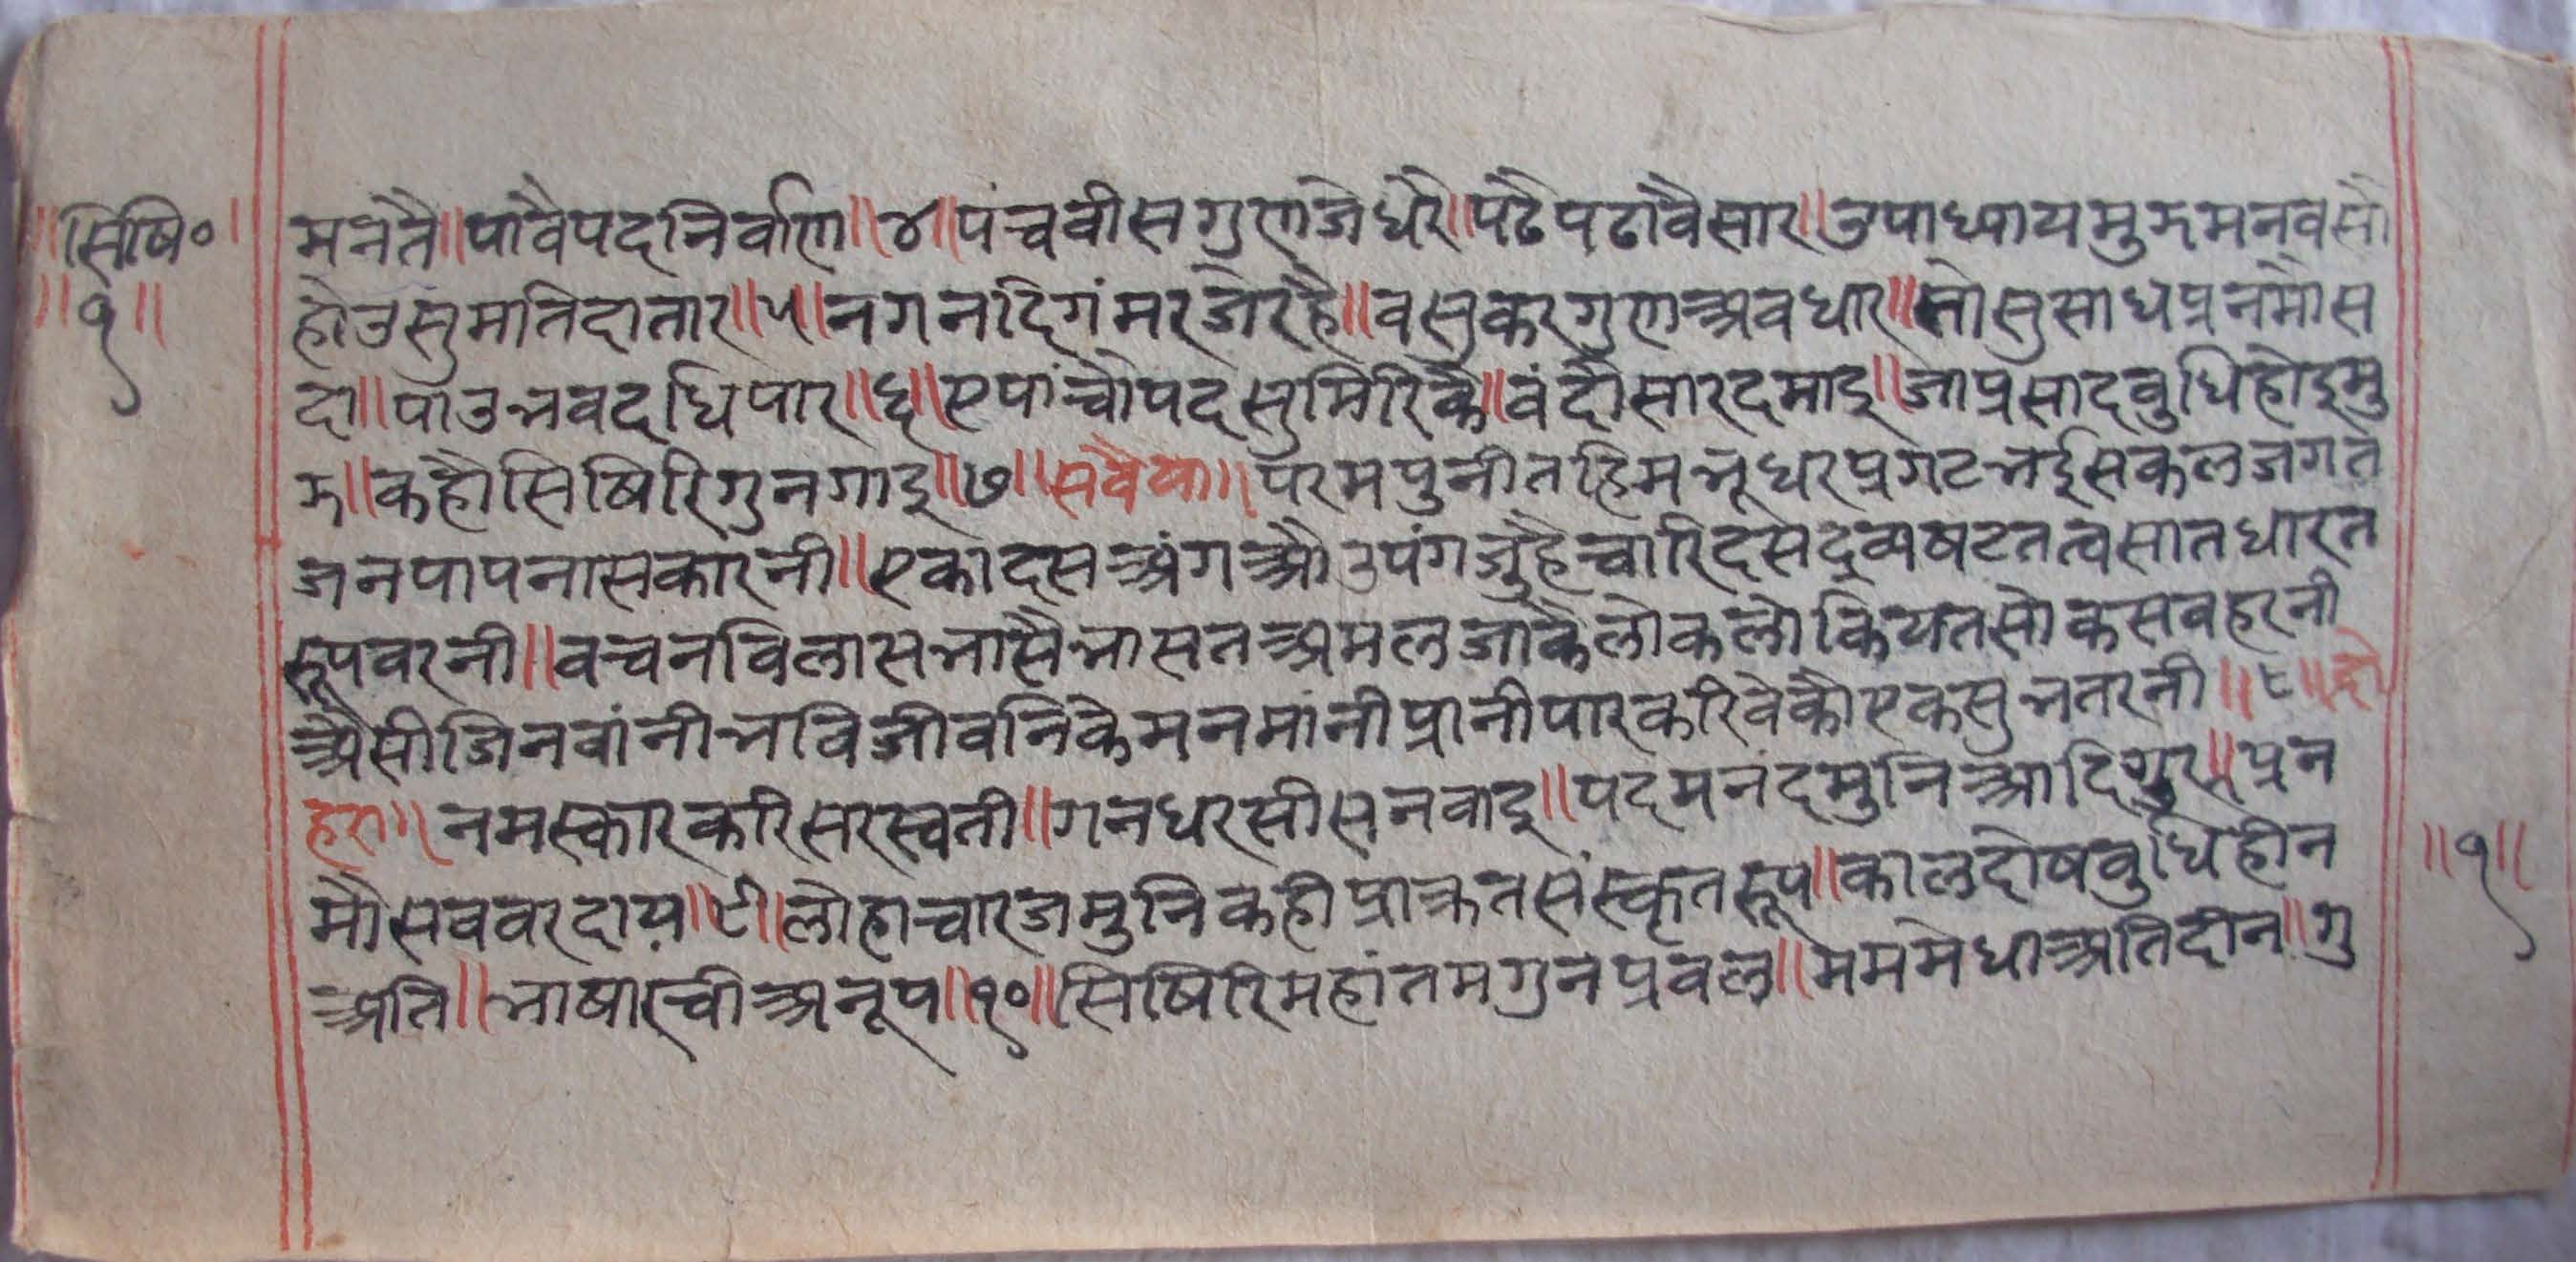 ॥सिषि०॥ मनतै॥पावैपदनिर्वाण॥४॥पंचवीसगुणजेधरै॥पढैपढावैसार॥उपाध्यायमुझमनवसौ
॥१॥ होउसुमतिदातार॥५॥नगनदिगंमरजेरहै॥वसुकरगुणअवधार॥सोसुसाधप्रनमौस
दा॥पाउभवदधिपार॥६॥एपांचोपदसुमिरिकै॥वंदौसारदमाइ॥जाप्रसादवुधिहोइमु
झ॥कहौसिषिरिगुनगाइ॥७॥सवैया॥परमपुनीतहिमभूधरप्रगटभईसकलजगत
जनपापनासकारनी॥एकादसअंगऔउपंगजुहैचारिदसदव्यषटतत्वसातधारत
रूपवरनी॥वचनविलासभासैभासतअमलजाकैलोकलोकियतसोकसवहरनी
अैसीजिनवांनीभविजीवनिकैमनमांनीप्रानीपारकरिवेकौएकसुभतरनी॥८॥दो
हरा॥नमस्कारकरिसरस्वती॥गनधरसीसनवाइ॥पदमनंदमुनिआदिगुर॥प्रन
मौसववरदाय॥९॥लोहाचारजमुनिकहीप्राक्रतसंस्कृतरूप॥कालदोषवुधिहीन
अति॥भाषारचीअनूप॥१०॥सिषिरिमहांतमगुनप्रवल॥मममेधाअतिदीन॥गु
॥१॥